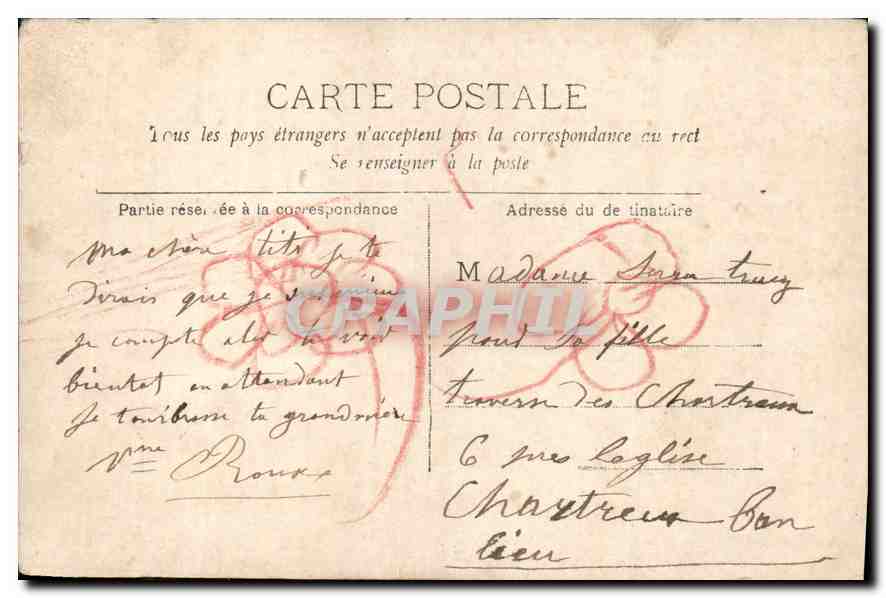 CARTE POSTALE
Tous les pays étrangers n'acceptent pas la correspondance au rect
Se renseigner à la poste
Partie réservée à la correspondance
ma chère tite je te
Dirais que je suis mieu
je compte aler te voir
bientot en attendant
Je t'embrasse ta grandmère
Vme Roux
Adresse du de tinataire
Madame
pour sa fille
traverse des Chartreux
6 pres leglise
Chartreux Ban
lieu
CPAPHIL